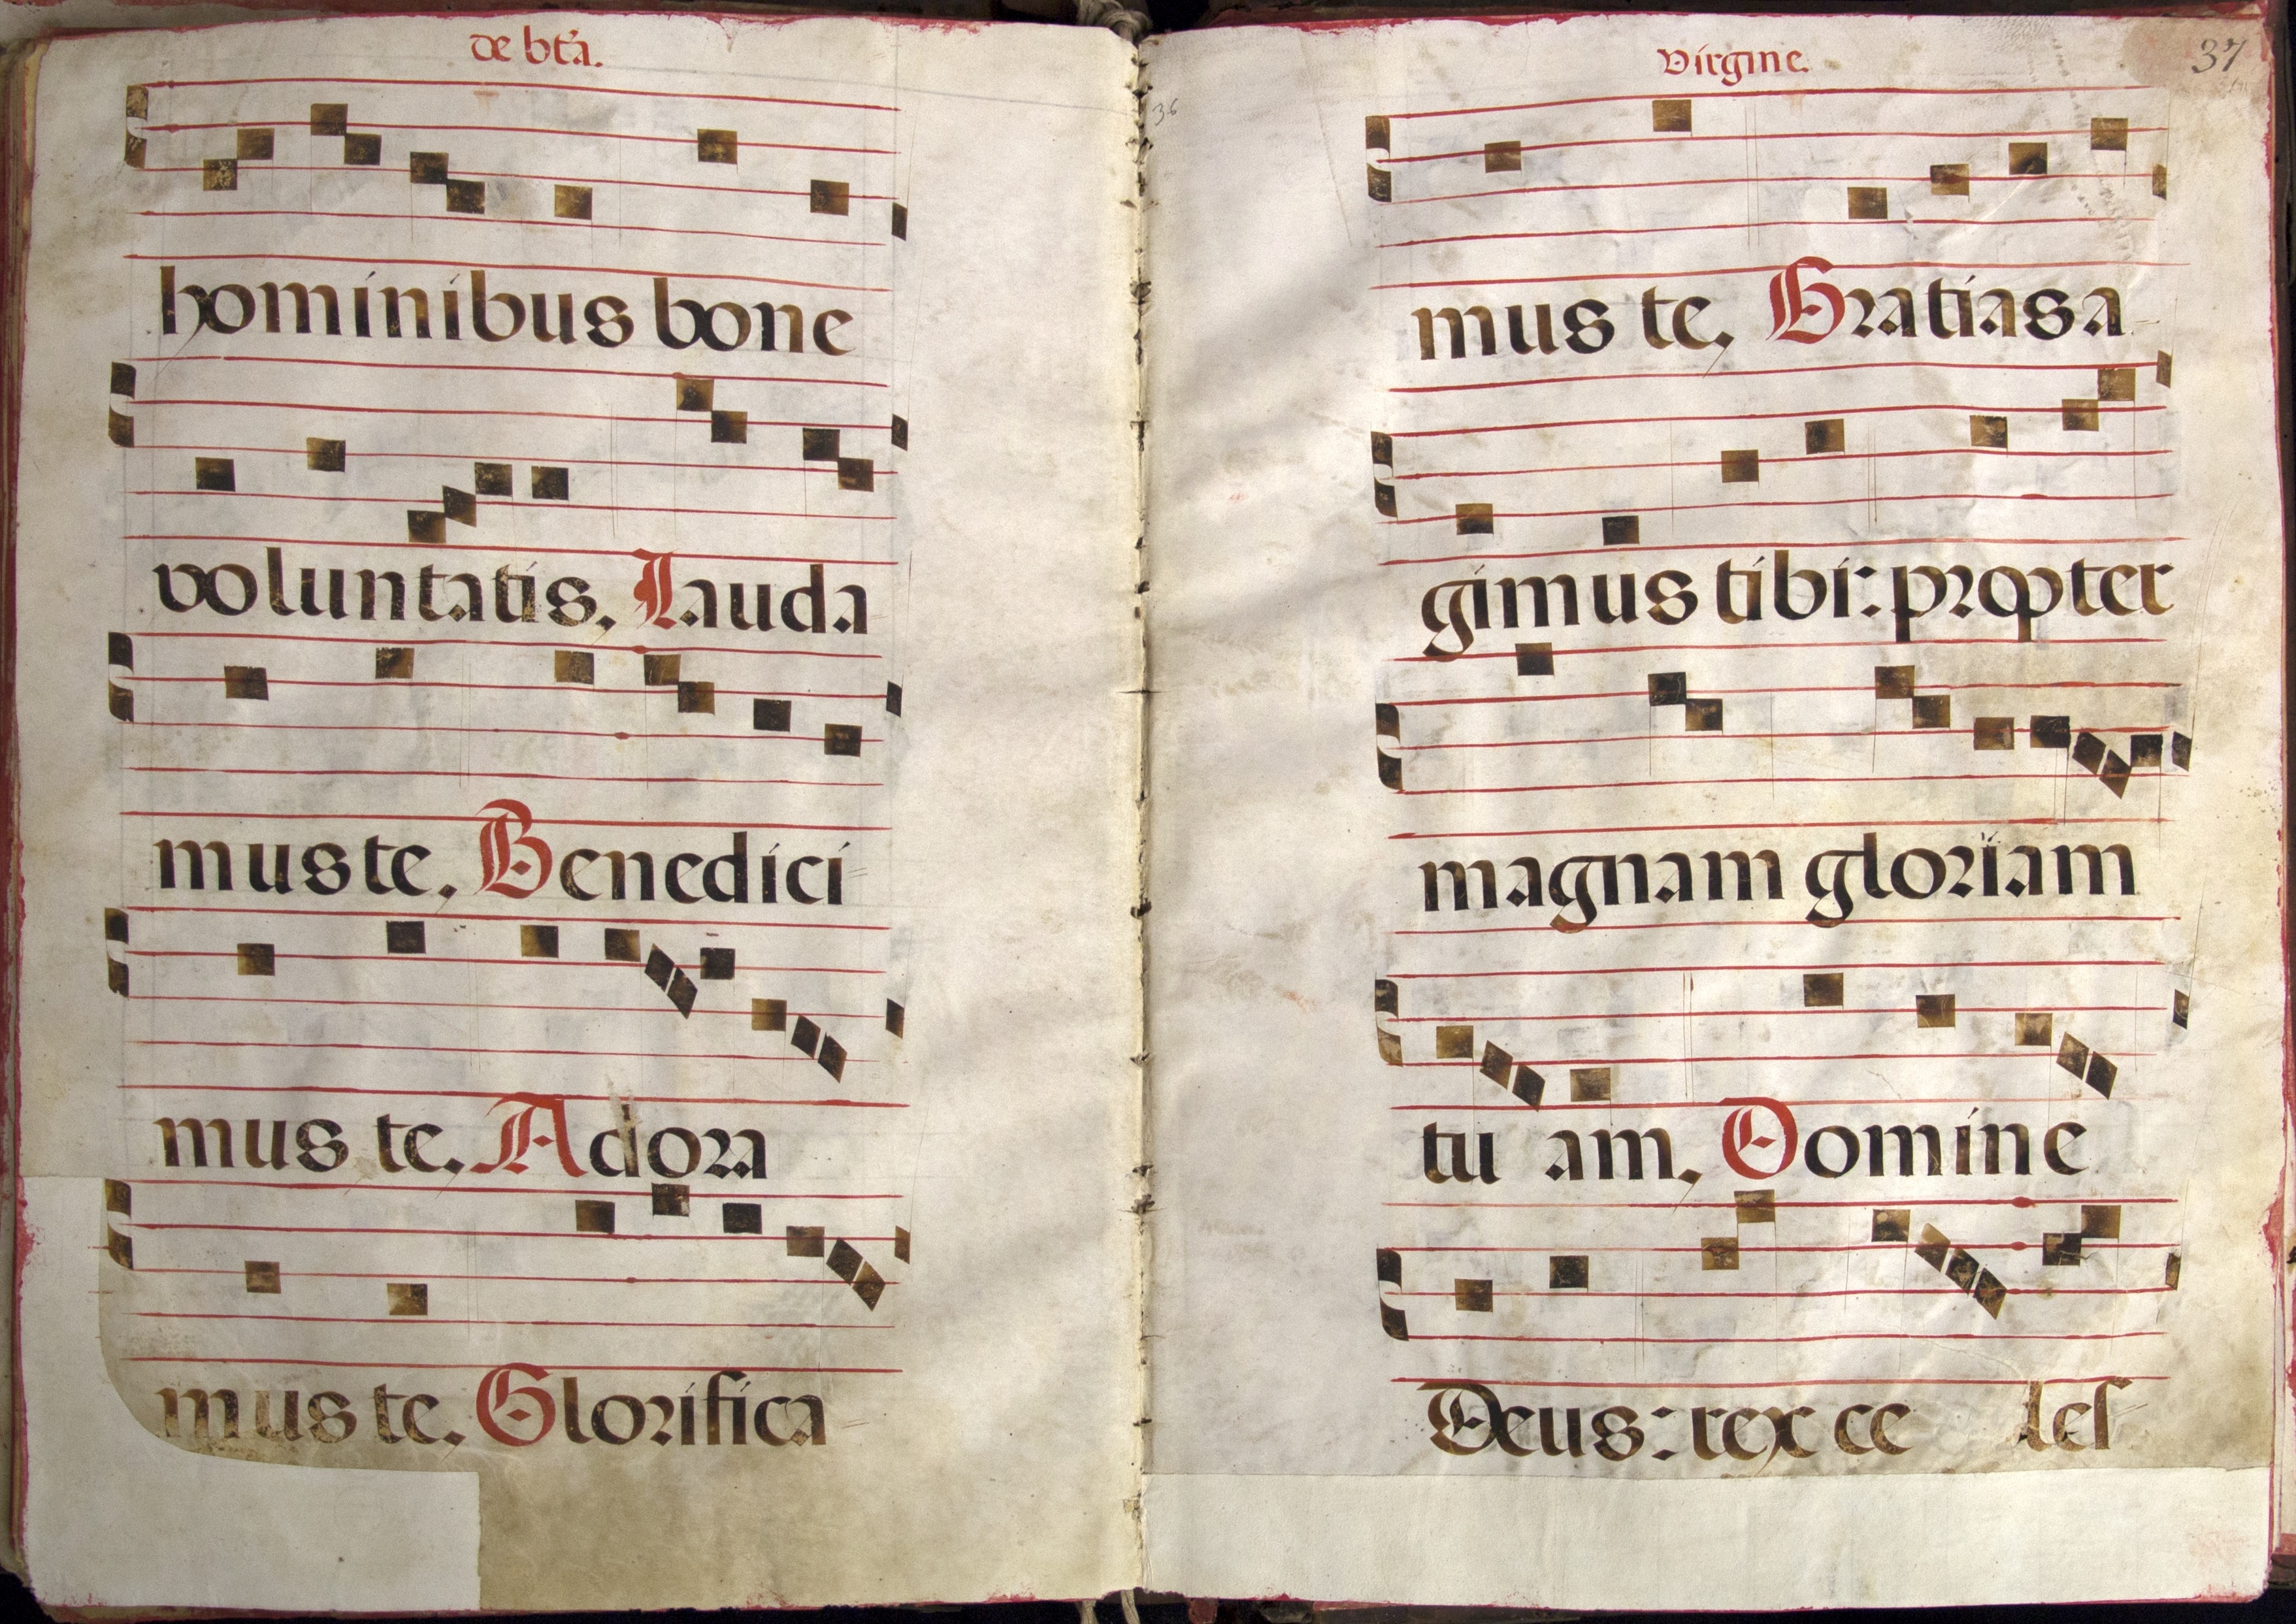 de bt̃a.
hominibus bone
voluntatis. Lauda
mus te. Benedici-
mus te. Adora
mus te. Glorifica-
virgine.
37
36
mus te. Gratias a-
gimus tibi: propter
magnam gloriam
tu am. Domine
Deus: rex ce les